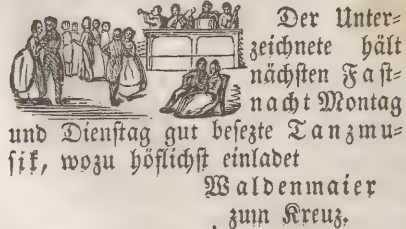 Der Unter=
zeichnete hält
nächsten Fast=
nacht Montag
und Dienstag gut besezte Tanzmu=
sik, wozu höflichst einladet
Waldenmaier
zum Kreuz.